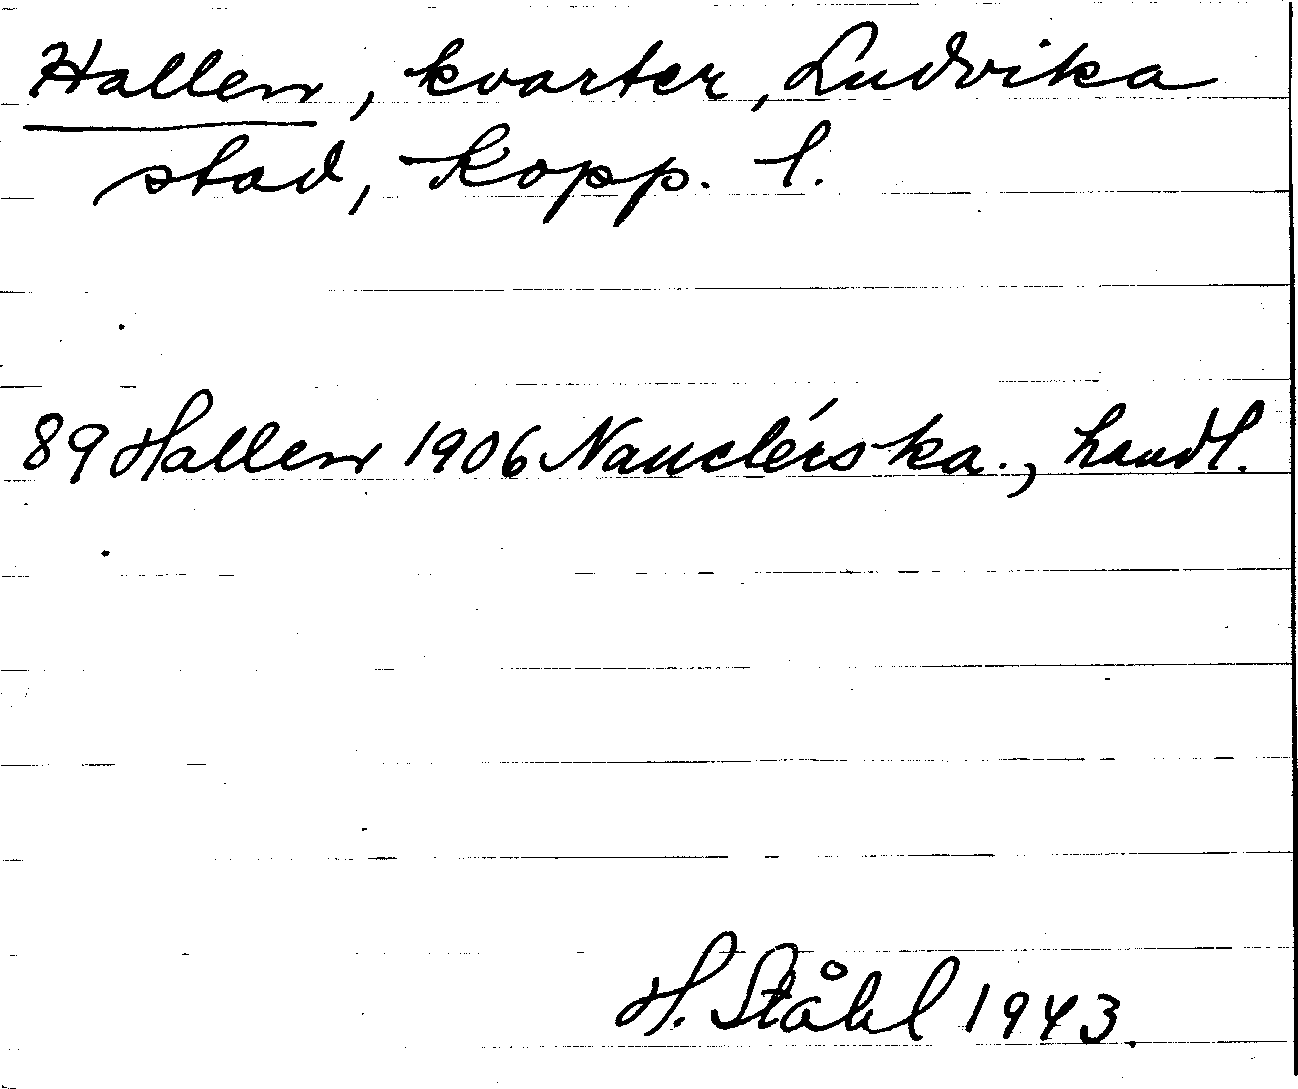 Hallen, kvarter, Ludvika
stad, Kopp. l.
89 Hallen 1906 Nauclérska., handl.
H. Ståhl 1943.